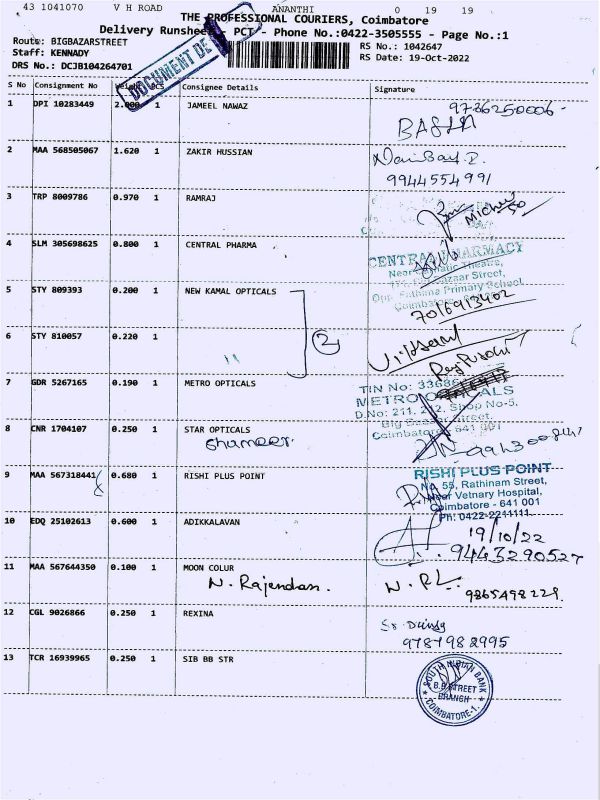 43 1041070 V H ROAD ANANTHI 0 19 19
THE PROFESSIONAL COURIERS, Coimbatore
Delivery Runsheet - PCT - Phone No.:0422-3505555 - Page No.:1
Route: BIGBAZARSTREET
Staff: KENNADY
DRS No.: DCJB104264701
RS No.: 1042647
RS Date: 19-Oct-2022
DOCUMENT DE
S No Consignment No Weight PCS Consignee Details Signature
1 DPI 10283449 2.000 1 JAMEEL NAWAZ
BASHA
2 MAA 568505067 1.620 1 ZAKIR HUSSIAN
9944554991
3 TRP 8009786 0.970 1 RAMRAJ
4 SLM 305698625 0.800 1 CENTRAL PHARMA
CENTRAL PHARMACY
Theatre,
Bazaar Street,
Opp. Fathima Primary School
Coimbatore
5 STY 809393 0.200 1 NEW KAMAL OPTICALS
7016913402
6 STY 810057 0.220 1 " 2
7 GDR 5267165 0.190 1 METRO OPTICALS
TIN No: 33686
METRO OPTICALS
D.No: 211, 212, Shop No-5,
Big Bazaar Street,
Coimbatore - 641 001
8 CNR 1704107 0.250 1 STAR OPTICALS
Shameer.
9 MAA 567318441 0.680 1 RISHI PLUS POINT
RISHI PLUS POINT
No 55, Rathinam Street,
Near Vetnary Hospital,
Coimbatore - 641 001
Ph: 0422-2211111
10 EDQ 25102613 0.600 1 ADIKKALAVAN
19/10/22
9443290527
11 MAA 567644350 0.100 1 MOON COLUR
N. Rajendan.
9865498229.
12 CGL 9026866 0.250 1 REXINA
9787982995
13 TCR 16939965 0.250 1 SIB BB STR
SOUTH INDIAN BANK
B.B. STREET
BRANCH
COIMBATORE-1.